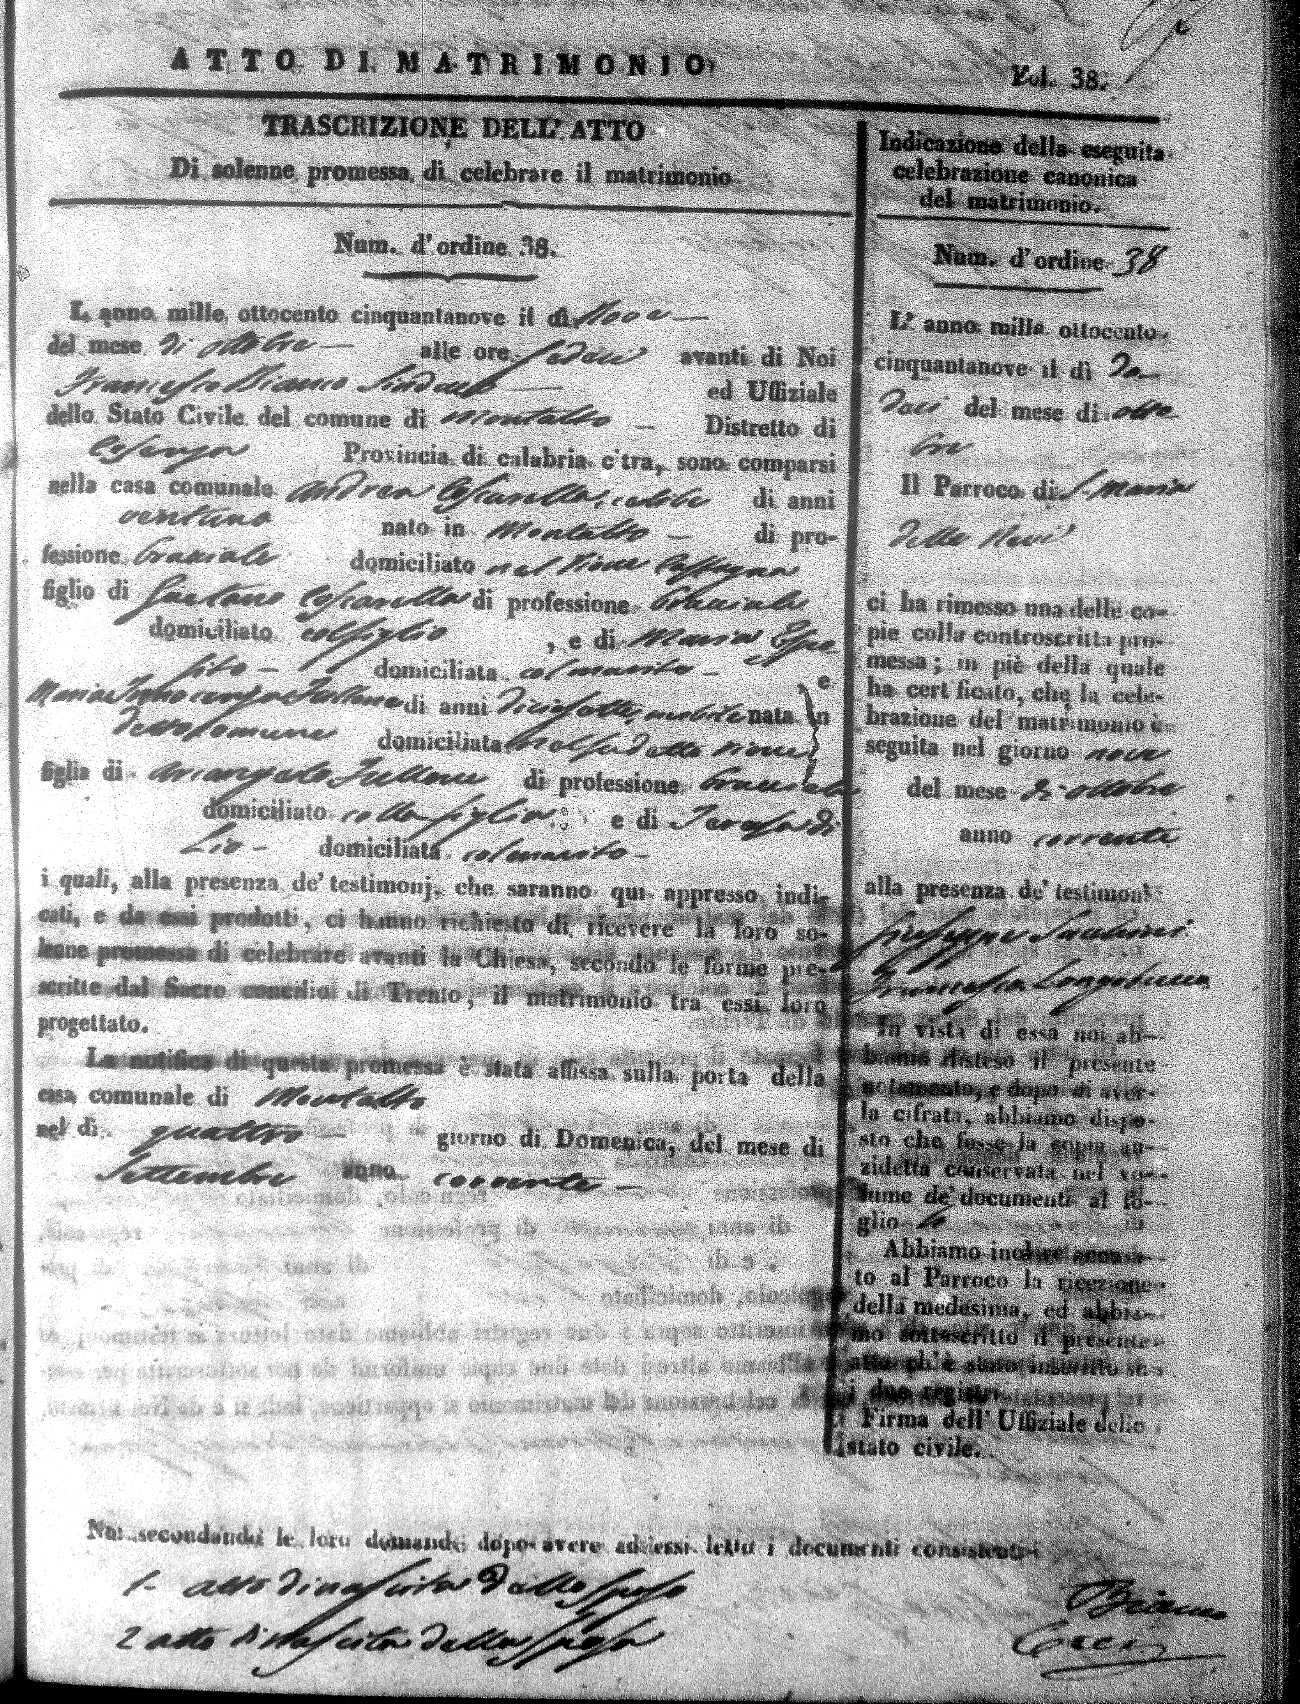 ATTO DI MATRIMONIO
Vol. 38.
TRASCRIZIONE DELL' ATTO
Di solenne promessa di celebrare il matrimonio
Num. d' ordine 38.
L' anno mille ottocento cinquantanove il dì Nove
del mese di ottobre alle ore sedeci avanti di Noi
Francesco Bianco Sindaco ed Uffiziale
dello Stato Civile del comune di Montalto Distretto di
Cosenza Provincia di calabria citra, sono comparsi
nella casa comunale Andrea Coscarella, celibe di anni
ventuno nato in Montalto di pro-
fessione bracciale domiciliato nel Rione
figlio di Gaetano Coscarella di professione bracciale
domiciliato col figlio, e di Maria Espo
sito domiciliata col marito e
Maria Innocenza Fullone di anni diciasette, nubile nata in
detto comune domiciliata nel sudetto rione
figlia di Arcangelo Fullone di professione bracciale
domiciliato colla figlia e di Teresa di
Lio domiciliata col marito
i quali, alla presenza de' testimonj, che saranno qui appresso indi-
cati, e da essi prodotti, ci hanno richiesto di ricevere la loro so-
lenne promessa di celebrare avanti la Chiesa, secondo le forme pre-
scritte dal Sacro concilio di Trento, il matrimonio tra essi loro
progettato.
La notifica di questa promessa è stata affissa sulla porta della
casa comunale di Montalto
nel dì quattro giorno di Domenica, del mese di
Settembre anno corrente
Noi secondando le loro domande dopo avere ad essi letto i documenti consistenti
1. atto di nascita dello sposo
2 atto di nascita della sposa
Indicazione della eseguita
celebrazione canonica
del matrimonio.
Num. d' ordine 38
L' anno mille ottocento
cinquantanove il dì Do
dici del mese di otto
bre
Il Parroco di S. Maria
della Neve
ci ha rimesso una delle co-
pie colla controscritta pro-
messa; in piè della quale
ha certificato, che la cele-
brazione del matrimonio è
seguita nel giorno nove
del mese di ottobre
anno corrente
alla presenza de' testimoni
Giuseppe
Francesco Longobucco
In vista di essa noi ab-
biamo disteso il presente
notamento, e dopo di aver-
la cifrata, abbiamo dispo-
sto che fosse la copia an-
zidetta conservata nel vo-
lume de' documenti al fo-
glio
Abbiamo inoltre accusa-
to al Parroco la ricezione
della medesima, ed abbia-
mo sottoscritto il presente
atto ch' è stato inscritto su
i due registri.
Firma dell' Uffiziale dello
stato civile.
Bianco